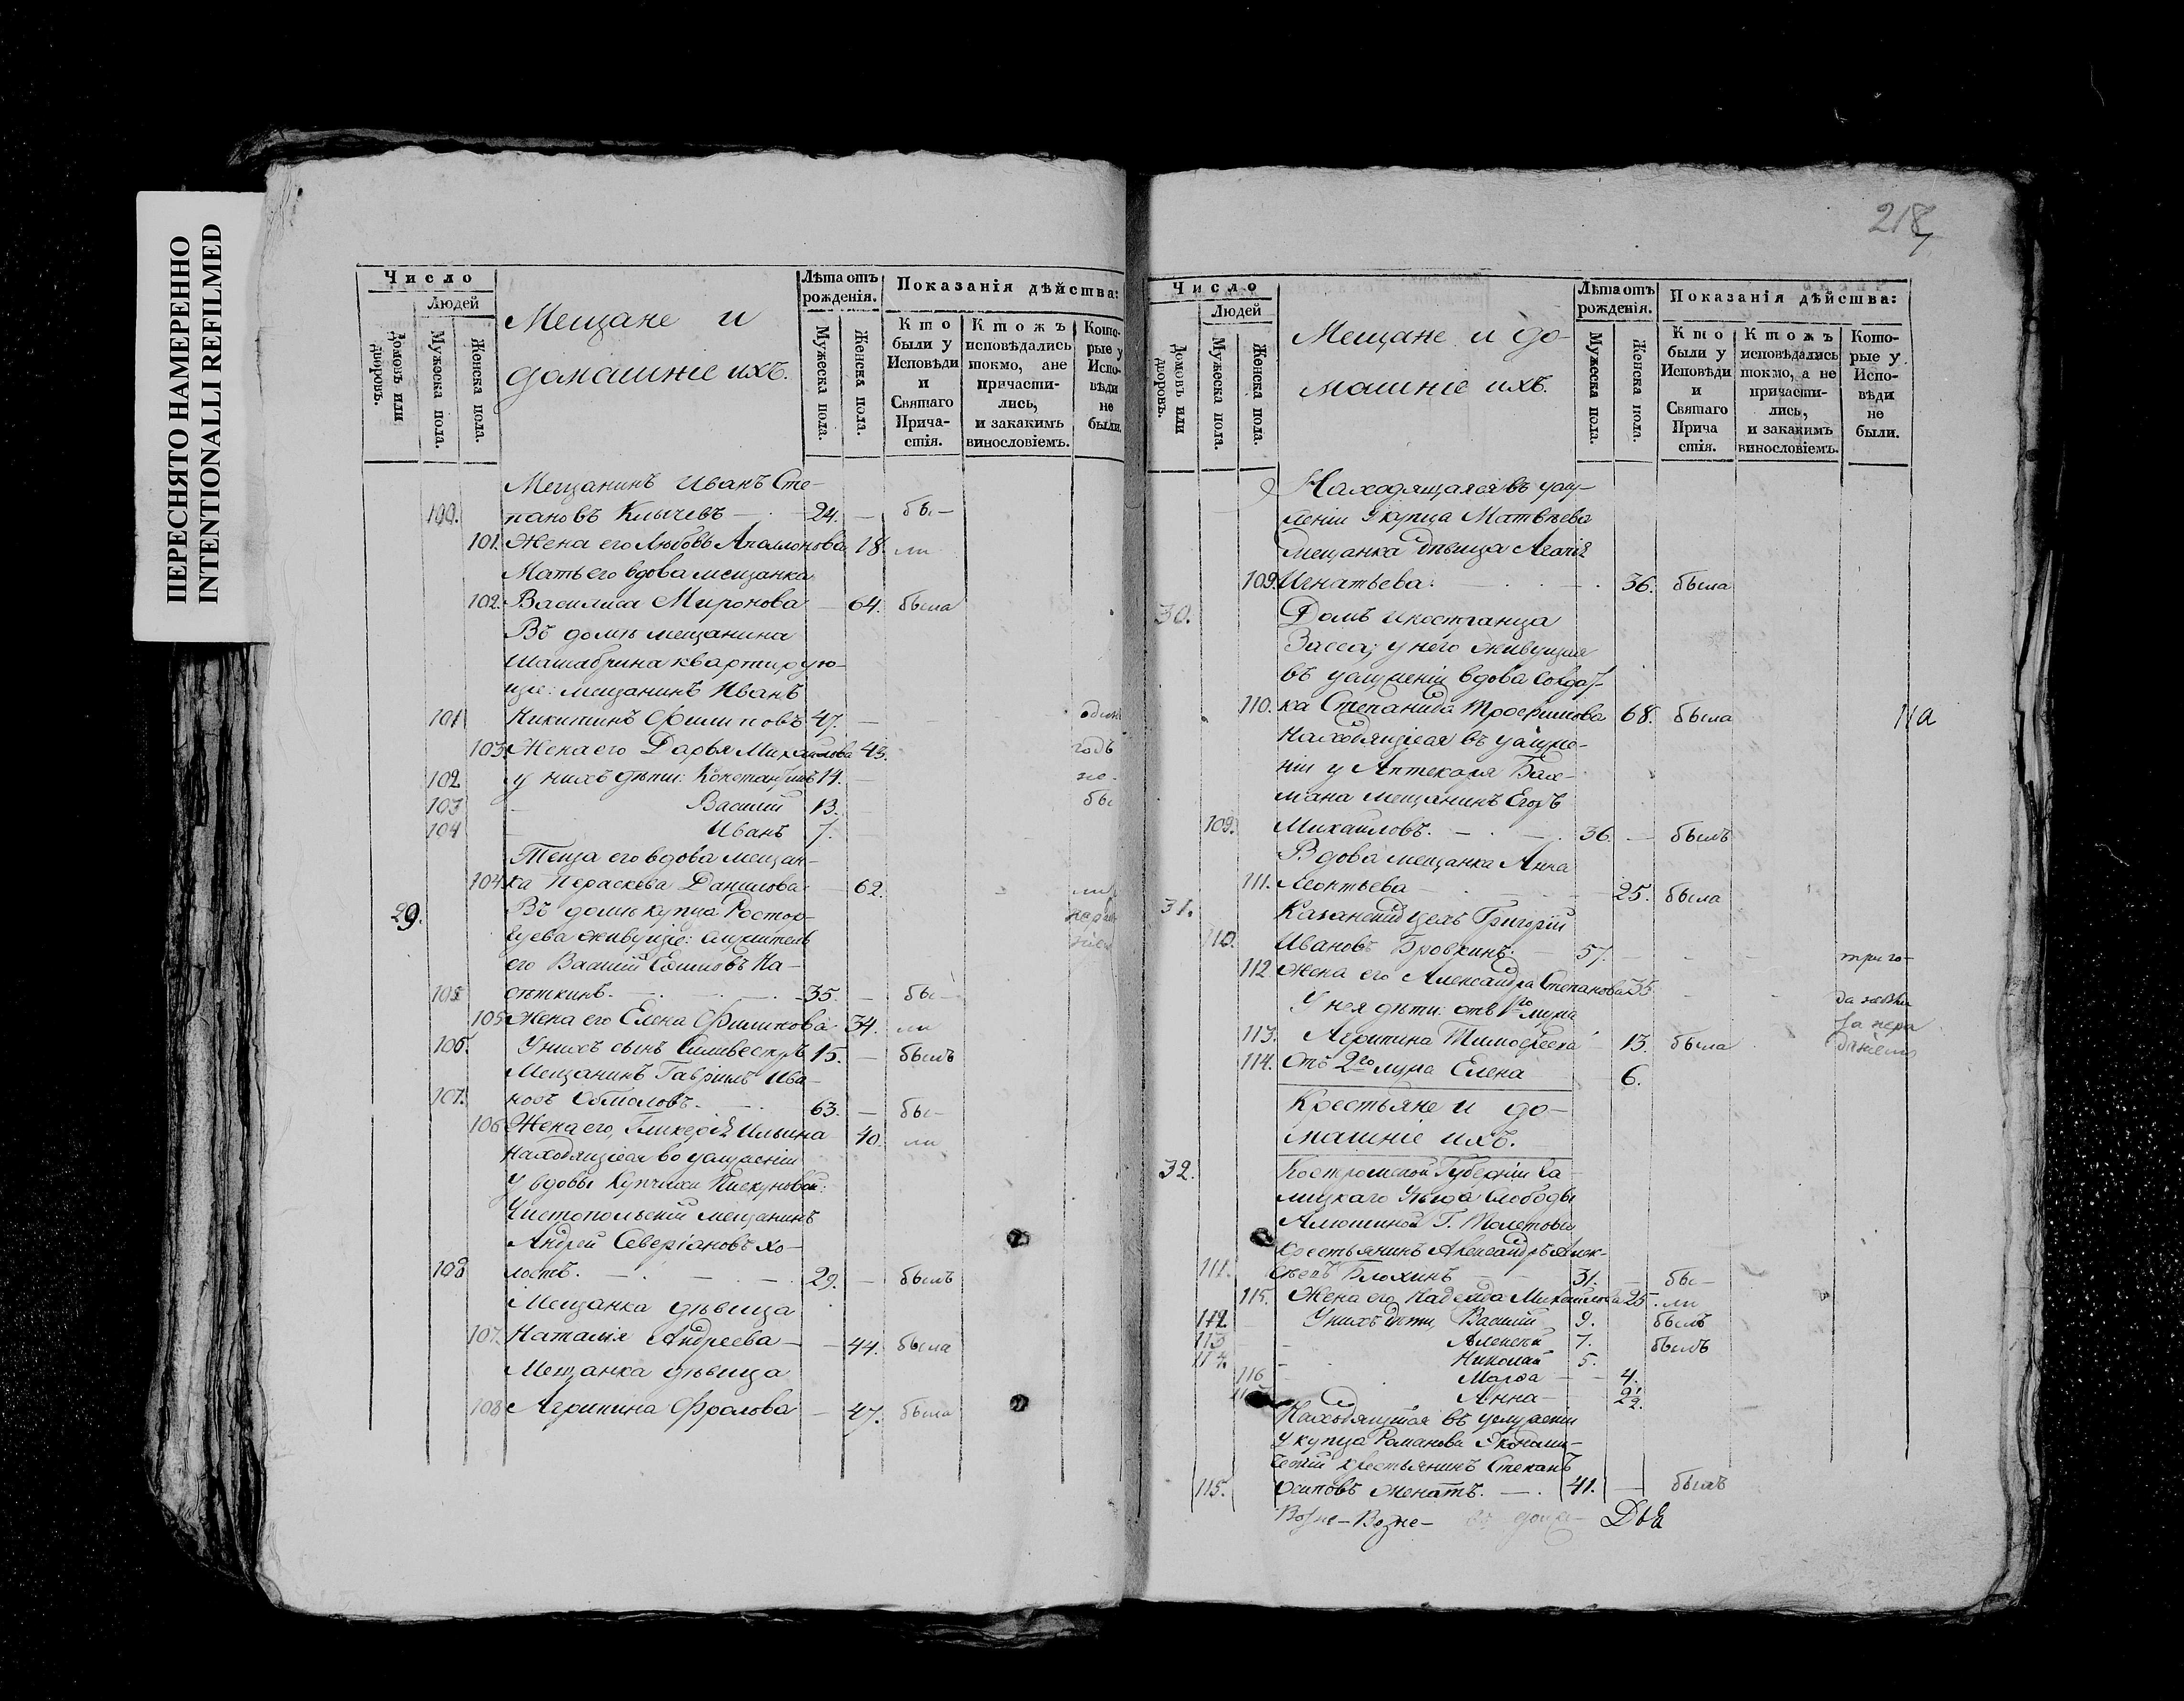 ПЕРЕСНЯТО НАМЕРЕННО
INTENTIONALLI REFILMED
Число
Людей
Домовъ или дворовъ.
Мужеска пола.
Женска пола.
Мещане и
домашніе ихъ.
Лѣта отъ рожденія.
Мужеска пола.
Женска пола.
Показанія дѣйства:
Кто были у Исповѣди и Святаго Причастія.
Ктожъ исповѣдались токмо, ане причастились, и закакимъ винословіемъ.
Которые у Исповѣди не были.
Мещанинъ Иванъ Сте-
100. пановъ Клычевъ — 24. — бы-
101. Жена его Любовь Апаллонова 18. ли
Мать его вдова мещанка
102. Василиса Миронова — 64. была
Въ домѣ мещанина
квартирую-
щіе: мещанинъ Иванъ
101 Никитинъ Филиповъ 47. — одинъ
103. Жена его Дарья Михайлова 43. годъ
102 у нихъ дѣти: Константинъ 14. — не
103 Василій 13. бы
104 Иванъ 7.
Теща его вдова мещан-
104. ка Параскева Данилова — 62. ли
29. Въ домѣ купца
живущіе: служитель
его Василій Ефимовъ
105 35. — бы-
105 Жена его Елена Филипова 34. ли
106. У нихъ сынъ Сильвестръ 15. — былъ
Мещанинъ Гавріилъ Ива-
107. новъ 63. — бы-
106 Жена его, Гликерія Ильина 40. ли
Находящіеся во услуженіи
у вдовы купчихи
Чистопольскій мещанинъ
Андрей Северіановъ хо-
108 лостъ. — 29. — былъ
Мещанка дѣвица
107. Наталія Андреева — 44. была
Мещанка дѣвица
108 Агрипина Фролова — 47. была
218
Число
Людей
Домовъ или дворовъ.
Мужеска пола.
Женска пола.
Мещане и до-
машніе ихъ.
Лѣта отъ рожденія.
Мужеска пола.
Женска пола.
Показанія дѣйства:
Кто были у Исповѣди и Святаго Прича стія.
Ктожъ исповѣдались токмо, а не причастились, и закакимъ винословіемъ.
Которые у Исповѣди не были.
Находящаяся въ услу-
женіи у купца Матвѣева
мещанка дѣвица
109. Игнатьева. — 36. была
30. Домъ иностранца
Засса; у него живущая
въ услуженіи вдова солдат-
110. ка Степанида Трофимова 68. была
Находящіеся въ услуже-
ніи у Аптекаря Бах-
мана мещанинъ Егоръ
109. Михайловъ. — 36. — былъ
Вдова мещанка Анна
111. Леонтьева — 25. была
31. Казанскій цехъ Григорій
110. Ивановъ Бровкинъ. — 57. — три го-
112. Жена его Александра Степанова 35 да небы
У нея дѣти отъ 1го мужа за нера
113. Тимофеева 13. была дѣніемъ
114. Отъ 2го мужа Елена 6.
Крестьяне и до-
машніе ихъ.
32. Костромской Губерніи Га-
лицкаго Уѣзда Слободы
крестьянинъ Александръ Алек-
111. сѣевъ Блохинъ 31. — бы-
115. Жена его, Надежда Михайлова 25. ли
112. У нихъ дѣти, Василій 9. былъ
113 Алексѣй 7. былъ
114. Николай 5.
116 Марфа 4.
Анна 2½.
Находящійся въ услуженіи
у купца Романова Экономи-
ческій крестьянинъ Степанъ
115. Осиповъ женатъ. — 41. — былъ